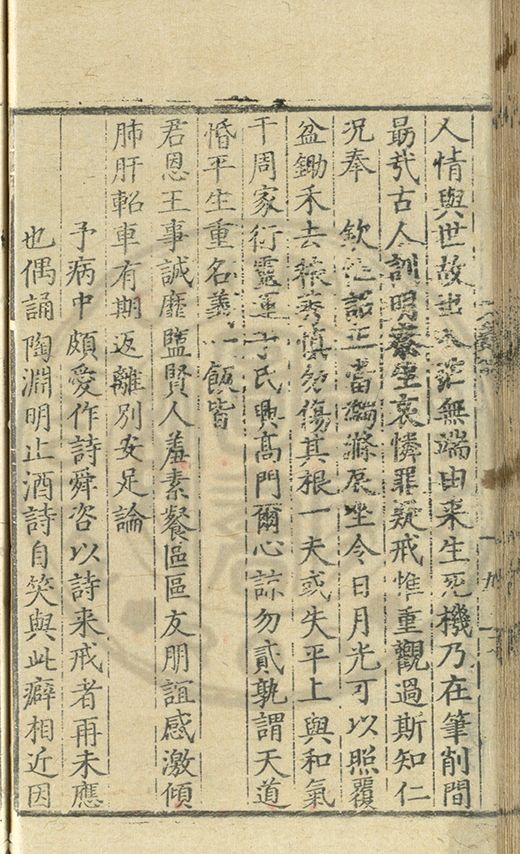 人情與世故出入茫無端由来生死機乃在筆削間
最哉古人訓明察生哀憐罪疑戒惟重觀過斯知仁
况奉 欽恤詔正當綱滌展坐令日月光可以照覆
盆鋤禾去稂莠慎勿傷其根一夫或失平上與和氣
干周家衍靈運于氏興髙門爾心諒勿貳孰謂天道
惛平生重名義一飯皆
君恩王事誠靡盬賢人羞素餐區區友朋誼感激傾
肺肝軺車有期返離别安足論
予病中頗愛作詩舜咨以詩来戒者再未應
也偶誦陶淵明止酒詩自笑與此癖相近因